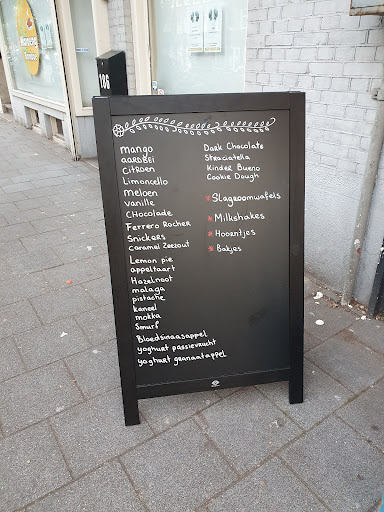 186
Mango
AARDBEI
CITROEN
Limoncello
Meloen
Vanille
CHocolade
Ferrero Rocher
Snickers
Caramel Zeezout
Lemon pie
appeltaart
Hazelnoot
malaga
pistache
kaneel
mokka
Smurf
Bloedsinaasappel
yoghurt passievrucht
yoghurt granaatappel
Dark Chocolate
Straciatella
Kinder Bueno
Cookie Dough
* Slagroomwafels
* Milkshakes
* Hoorntjes
* Bakjes